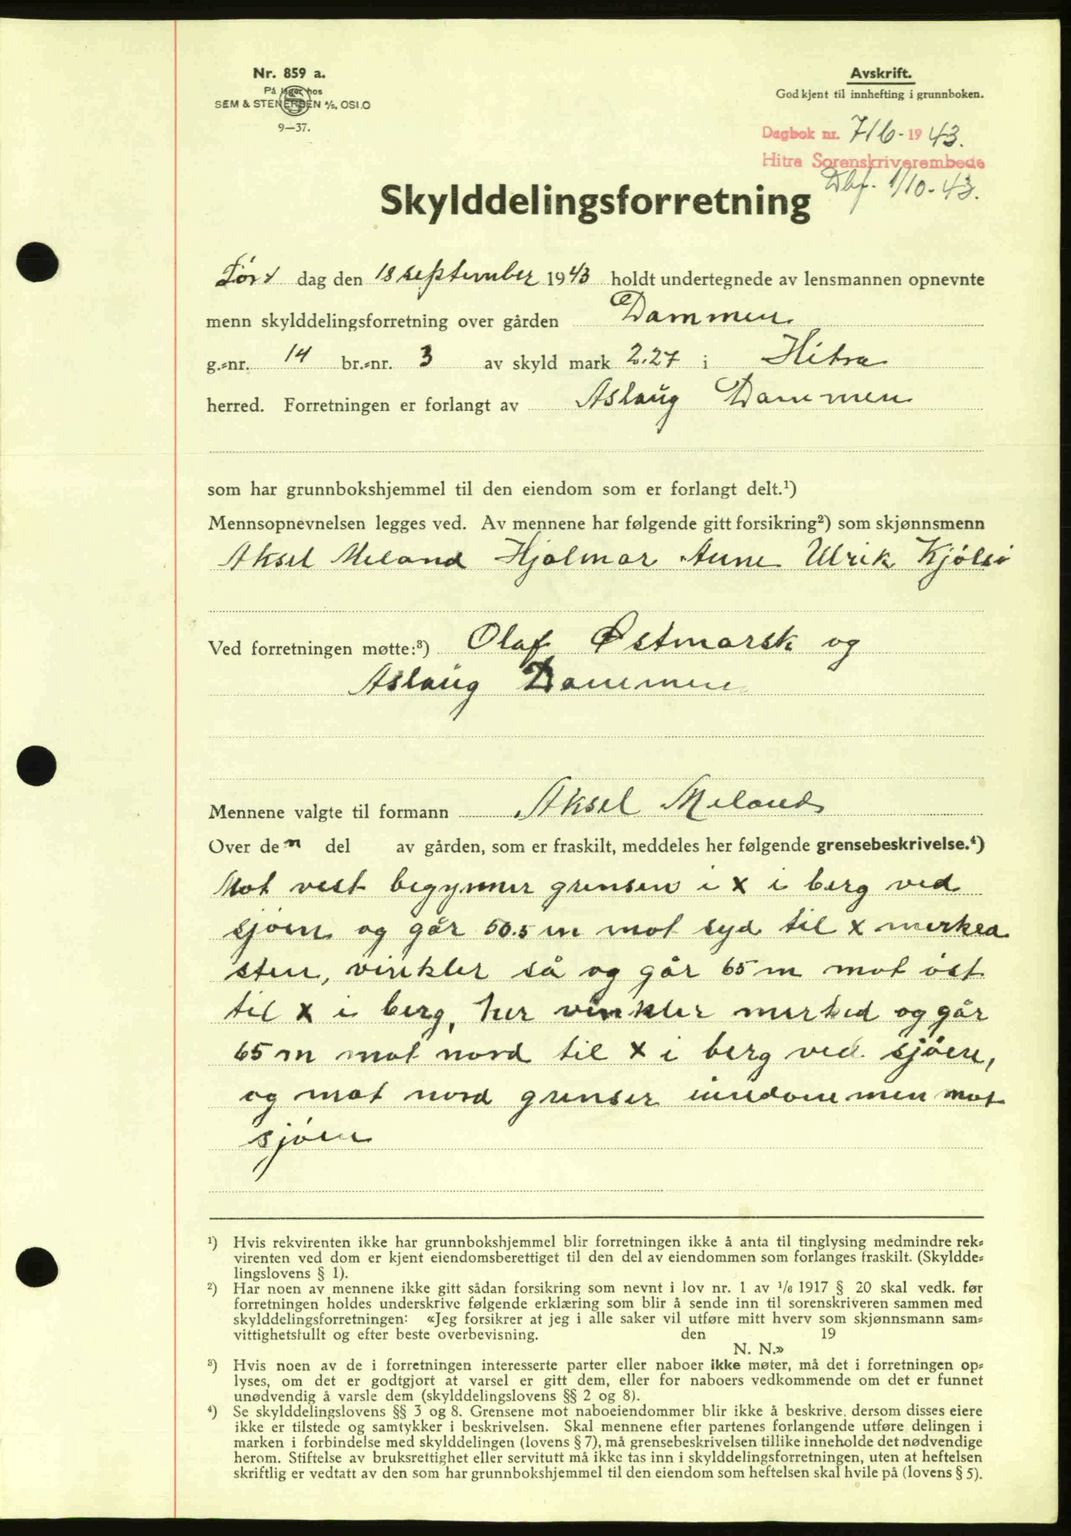 Nr. 859 a.
På lager hos
SEM & STENERSEN A/S, OSLO
9—37.
Avskrift.
Godkjent til innhefting i grunnboken.
Dagbok nr. 716 - 1943.
Hitra Sorenskriverembede
Dbf. 1/10-43.
Skylddelingsforretning
Lør dag den 18 september 1943 holdt undertegnede av lensmannen opnevnte
menn skylddelingsforretning over gården Dammen
g.-nr. 14 br.-nr. 3 av skyld mark 2.27 i Hitra
herred. Forretningen er forlangt av Aslaug Dammen
som har grunnbokshjemmel til den eiendom som er forlangt delt.¹)
Mennsopnevnelsen legges ved. Av mennene har følgende gitt forsikring²) som skjønnsmenn
Aksel Meland Hjalmar Aune Ulrik Kjølsø
Ved forretningen møtte:³) Olaf Østmarsk og
Aslaug Dammen
Mennene valgte til formann Aksel Meland
Over den del av gården, som er fraskilt, meddeles her følgende grensebeskrivelse.⁴)
Mot vest begynner grensen i x i berg ved
sjøen og går 50.5 m mot syd til x merked
sten, vinkler så og går 65 m mot øst
til x i berg, her vinkler merked og går
65 m mot nord til x i berg ved sjøen,
og mot nord grenser eiendommen mot
sjøen
¹) Hvis rekvirenten ikke har grunnbokshjemmel blir forretningen ikke å anta til tinglysing medmindre rek-
virenten ved dom er kjent eiendomsberettiget til den del av eiendommen som forlanges fraskilt. (Skyldde-
lingslovens § 1).
²) Har noen av mennene ikke gitt sådan forsikring som nevnt i lov nr. 1 av 1/6 1917 § 20 skal vedk. før
forretningen holdes underskrive følgende erklæring som blir å sende inn til sorenskriveren sammen med
skylddelingsforretningen: «Jeg forsikrer at jeg i alle saker vil utføre mitt hverv som skjønnsmann sam-
vittighetsfullt og efter beste overbevisning. den 19
N. N.»
³) Hvis noen av de i forretningen interesserte parter eller naboer ikke møter, må det i forretningen op-
lyses, om det er godtgjort at varsel er gitt dem, eller for naboers vedkommende om det er funnet
unødvendig å varsle dem (skylddelingslovens §§ 2 og 8).
⁴) Se skylddelingslovens §§ 3 og 8. Grensene mot naboeiendommer blir ikke å beskrive, dersom disses eiere
ikke er tilstede og samtykker i beskrivelsen. Skal mennene efter partenes forlangende utføre delingen i
marken i forbindelse med skylddelingen (lovens § 7), må grensebeskrivelsen tillike inneholde det nødvendige
herom. Stiftelse av bruksrettighet eller servitutt må ikke tas inn i skylddelingsforretningen, uten at heftelsen
skriftlig er vedtatt av den som har grunnbokshjemmel til den eiendom som heftelsen skal hvile på (lovens § 5).